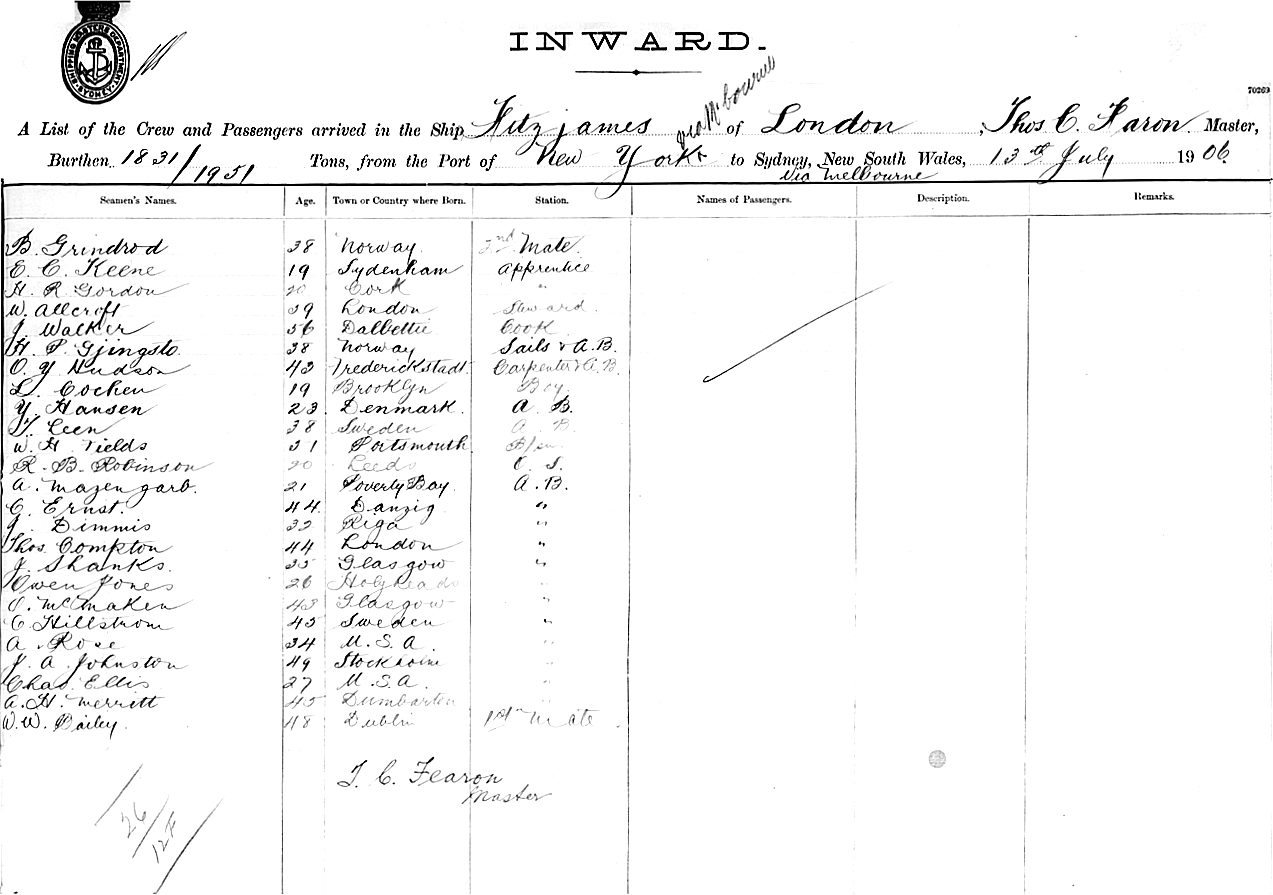 SHIPPING MASTERS DEPARTMENT SYDNEY
INWARD.
70269
via Melbourne
A List of the Crew and Passengers arrived in the Ship Fitzjames of London , Thos C. Faron Master,
Burthen 1831/1951 Tons, from the Port of New York to Sydney, New South Wales, 13th July 1906.
via Melbourne
Seamen's Names. Age. Town or Country where Born. Station. Names of Passengers. Description. Remarks.
B. Grindrod 38 Norway. 2nd Mate.
E. C. Keene 19 Sydenham Apprentice
H. R. Gordon 20 Cork "
W. Allcroft 39 London Steward.
J. Walker 56 Dalbettie Cook
H. P. Gjingsto. 38 Norway Sails & A.B.
O. Y. Hudson 43 Frederickstadt. Carpenter & A.B.
L. Cochen 19 Brooklyn Boy.
Y. Hansen 23 Denmark. A. B.
T. Leen 38 Sweden A. B.
W. H. Fields 31 Portsmouth B/sn
R. B. Robinson 20 Leeds O. S.
A. Mazengarb. 21 Poverty Bay. A.B.
C. Ernst. 44 Danzig "
J. Dimmis 32 Riga "
Thos. Compton 44 London "
J. Shanks. 35 Glasgow "
Owen Jones 26 Holyhead "
O. McMaken 43 Glasgow "
C. Hillstrom 45 Sweden "
A. Rose 34 U.S.A. "
J. A. Johnston 49 Stockholm "
Chas. Ellis 27 U.S.A. "
A. H. Merritt 45 Dumbarton "
W. W. Bailey. 48 Dublin 1st Mate.
T. C. Fearon
Master
26/12F